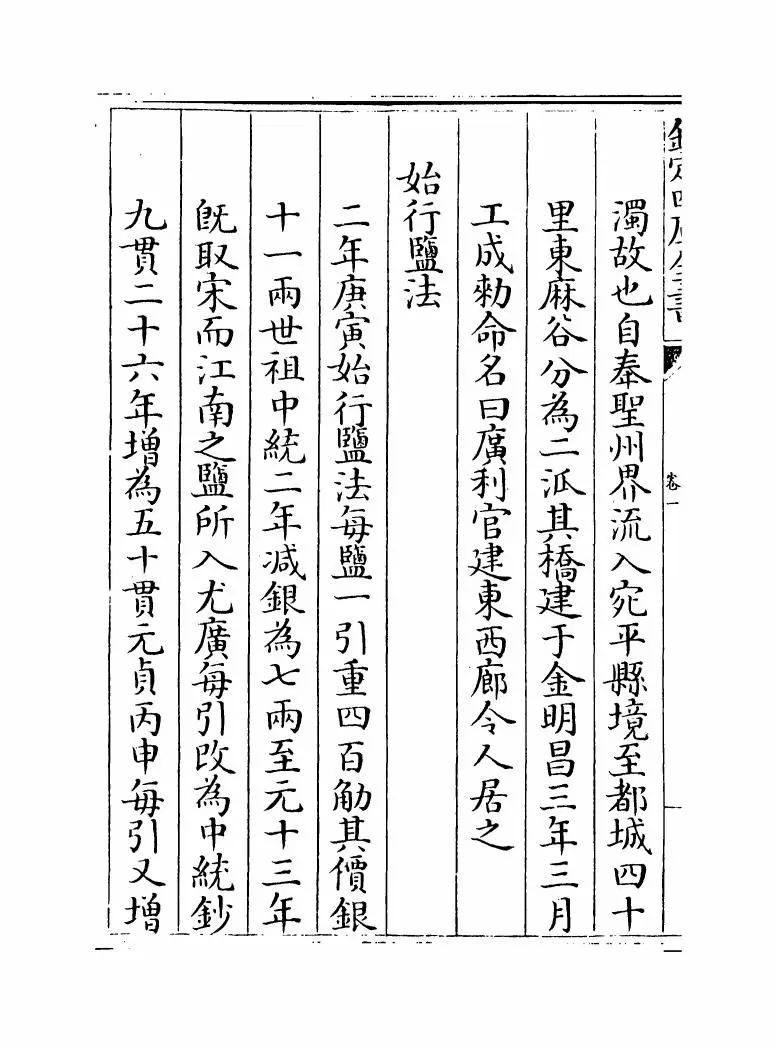 欽定四庫全書
卷一
濁故也自奉聖州界流入宛平縣境至都城四十
里東麻谷分為二派其橋建于金明昌三年三月
工成勑命名曰廣利官建東西廊令人居之
始行鹽法
二年庚寅始行鹽法每鹽一引重四百觔其價銀
十一兩世祖中統二年减銀為七兩至元十三年
旣取宋而江南之鹽所入尤廣每引改為中統鈔
九貫二十六年增為五十貫元貞丙申每引又增